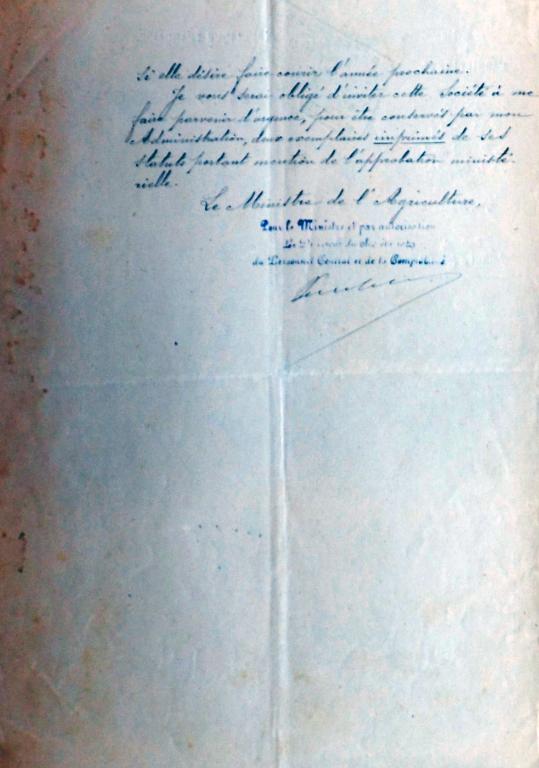 si elle désire faire courir l'année prochaine.
Je vous serai obligé d'inviter cette Société à me
faire parvenir d'urgence, pour être conservés par mon
Administration, deux exemplaires imprimés de ses
statuts portant mention de l'approbation ministé
rielle.
Le Ministre de l'Agriculture,
Pour le Ministre et par autorisation
Le Directeur du
du Personnel Central et de la Comptabilité